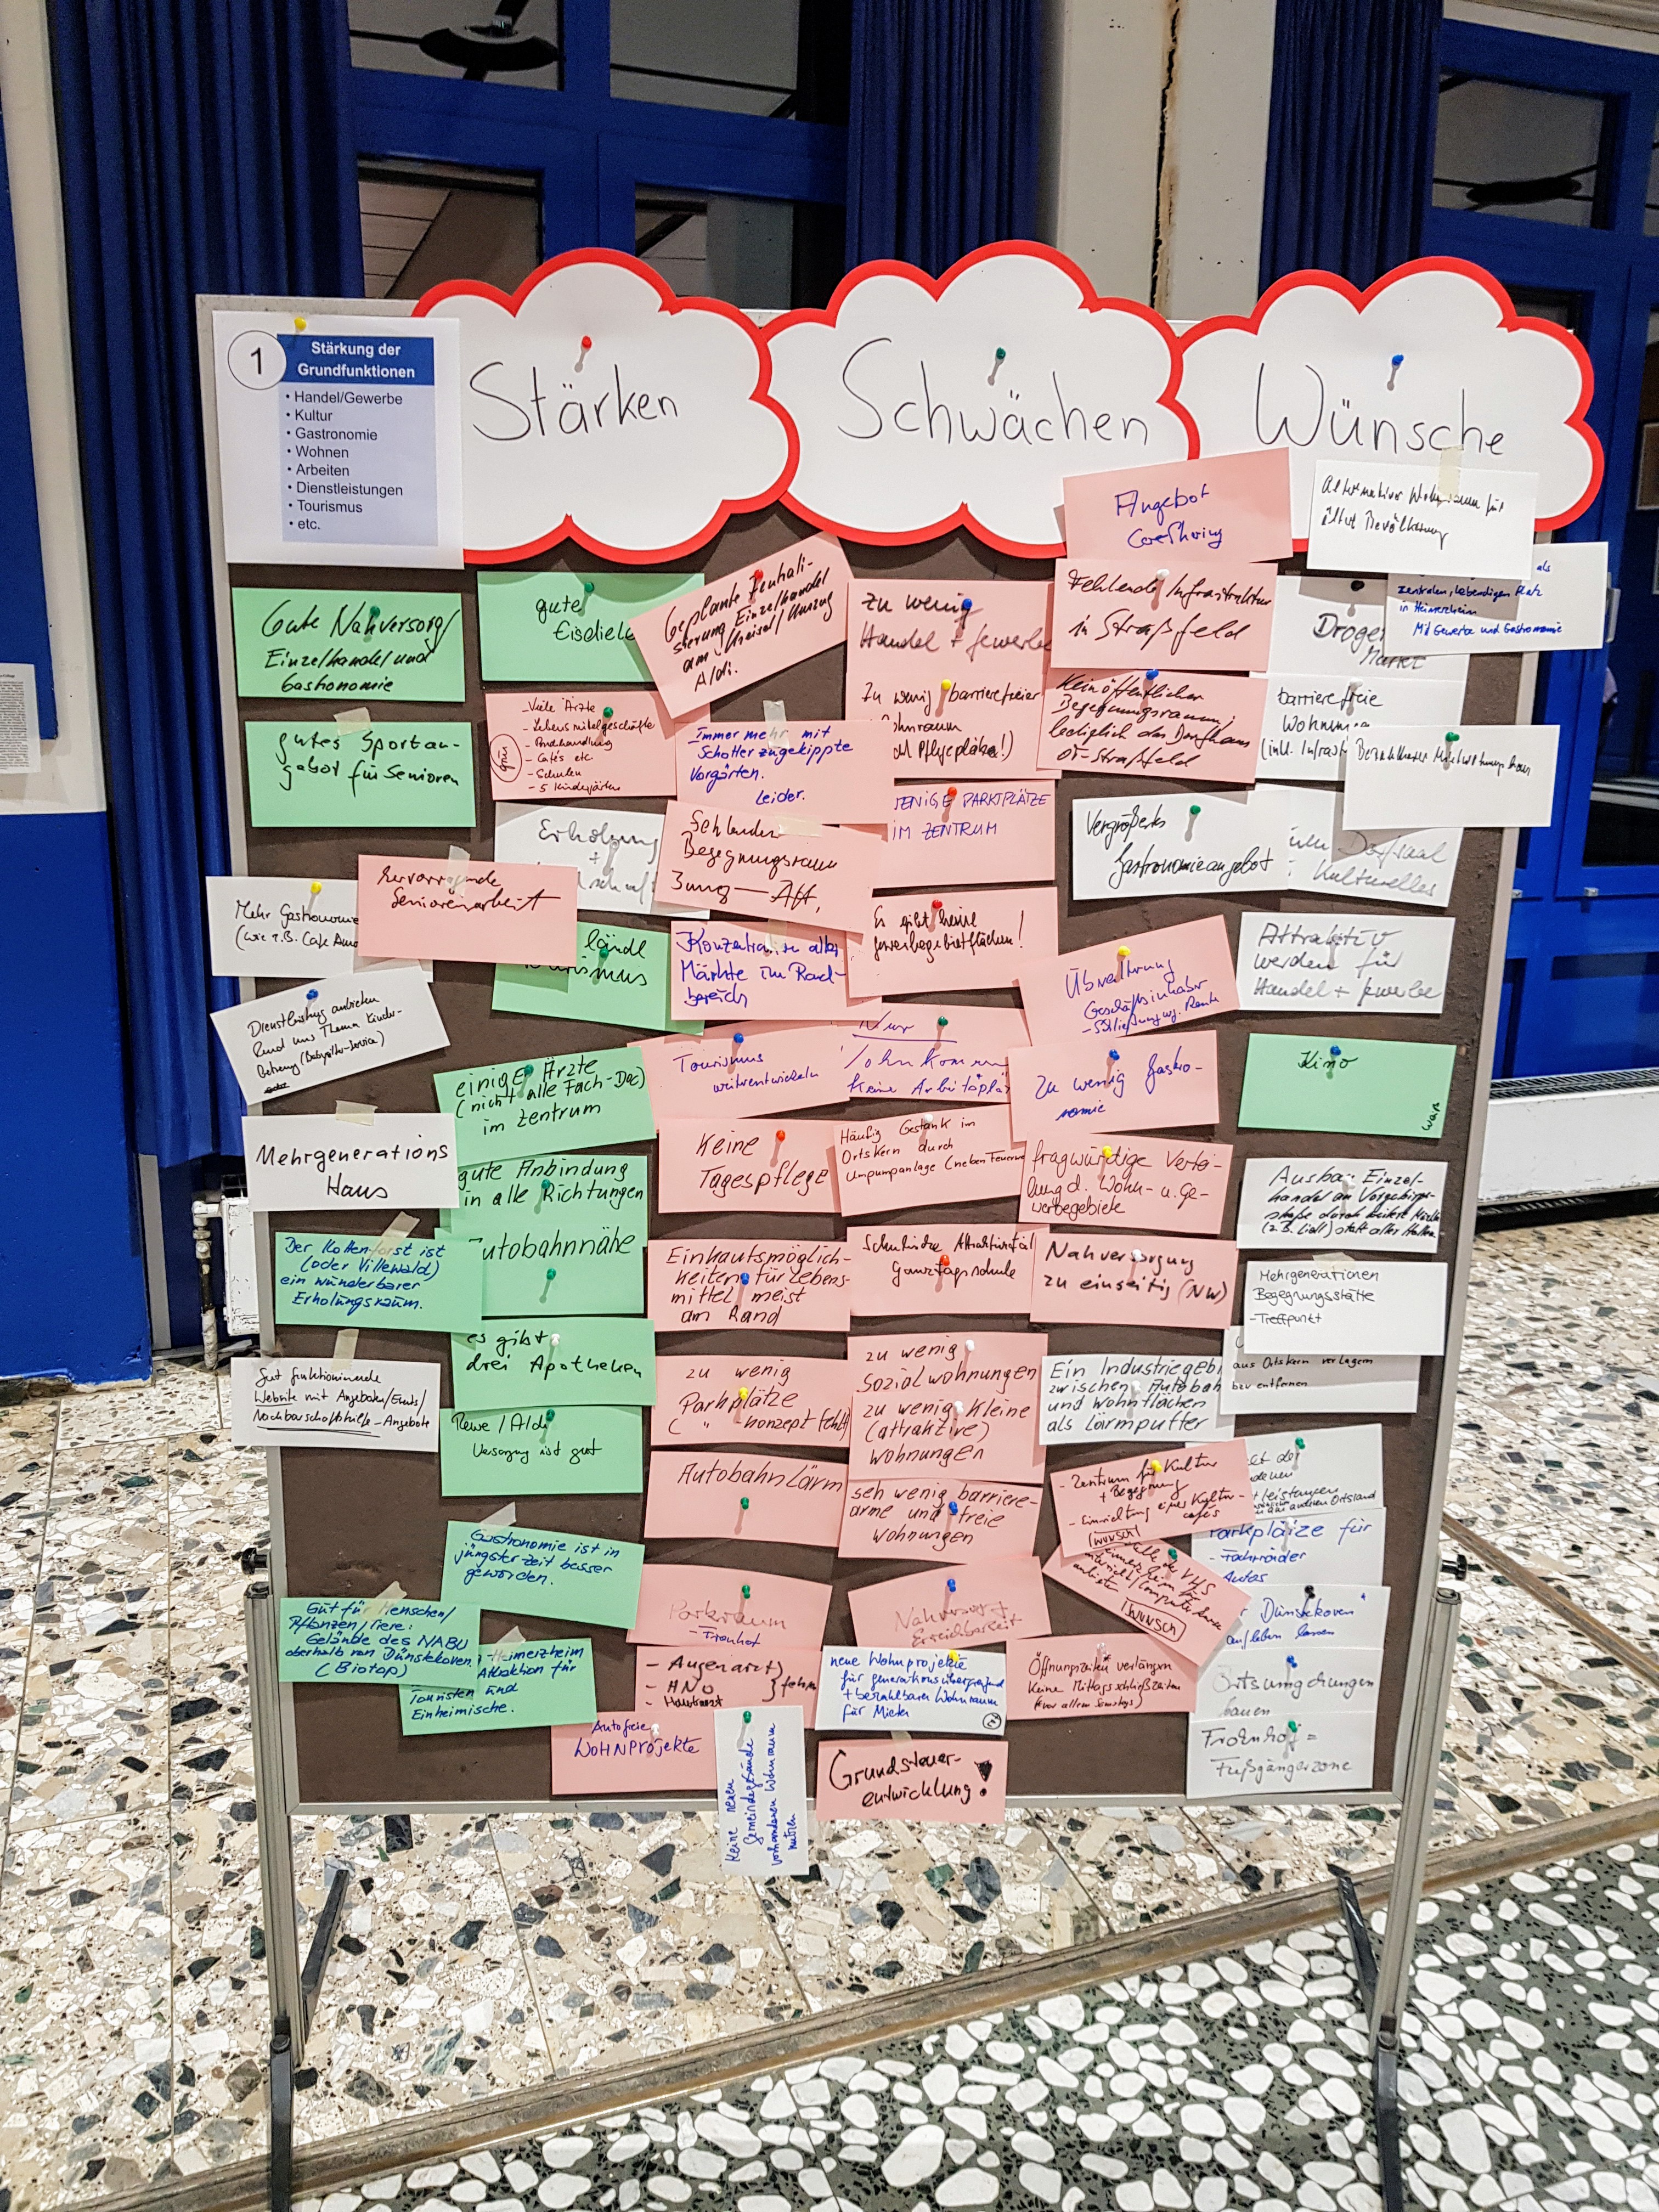 1
Stärkung der
Grundfunktionen
• Handel/Gewerbe
• Kultur
• Gastronomie
• Wohnen
• Arbeiten
• Dienstleistungen
• Tourismus
• etc.
Stärken
Schwächen
Wünsche
Gute Nahversorg/
Einzelhandel und
Gastronomie
gutes Sportan-
gebot für Senioren
Mehr Gastronomie
(wie z.B. Cafe
hervorragende
Seniorenarbeit
Dienstleistung anbieten
Rund ums Thema Kinder-
betreuung (Babysitter-Service)
Mehrgenerations
Haus
Der Kottenforst ist
(oder Villewald)
ein wunderbarer
Erholungsraum.
Gut funktionierende
Website mit Angeboten/Events/
Nachbarschaftshilfe-Angebote
Gut für Menschen/
Pflanzen/Tiere:
Gelände des NABU
oberhalb von Dünstekoven.
(Biotop)
Heimerzheim
Attraktion für
Touristen und
Einheimische.
gute
Eisdiele
- Viele Ärzte
- Lebensmittelgeschäfte
- Buchhandlung
- Cafés etc.
- Schulen
- 5 Kindergärten
grün
Erholung
+
ländl
einige Ärzte
(nicht alle Fach-Doc)
im Zentrum
gute Anbindung
in alle Richtungen
Autobahnnähe
es gibt
drei Apotheken
Rewe/Aldi
Versorgung ist gut
Gastronomie ist in
jüngster Zeit besser
geworden.
Geplante Zentrali-
sierung Einzelhandel
am Kreisel/
Aldi.
Immer mehr mit
Schotter zugekippte
Vorgärten.
Leider.
Fehlender
Begegnungsraum
Jung — Alt.
Konzentration aller
Märkte im Rand-
bereich
Tourismus
weiterentwickeln
Keine
Tagespflege
Einkaufsmöglich-
keiten für Lebens-
mittel meist
am Rand
zu wenig
Parkplätze
( " konzept fehlt)
Autobahnlärm
Parkraum
- Fronhof
- Augenarzt
- HNO
- Hautarzt
} fehlen
Autofreie
WOHNPROJEKTE
Keine neuen
Gemeindegebäude
vorhandenen Wohnraum
nutzen
zu wenig
Handel + Gewerbe
Zu wenig barrierefreier
Wohnraum
Pflegeplätze!)
WENIGE PARKPLÄTZE
IM ZENTRUM
Es gibt keine
Gewerbegebietsflächen!
Nur
Wohnkomm
Keine Arbeitsplä
Häufig Gestank im
Ortskern durch
Umpumpanlage (neben Feuerw
Attraktivität
Ganztagsschule
zu wenig
Sozialwohnungen
zu wenig kleine
(attraktive)
Wohnungen
seh wenig barriere-
arme und freie
Wohnungen
Nahversorgt
Erreichbarkeit
neue Wohnprojekte
für generationsübergreifend
+ bezahlbaren Wohnraum
für Mieter
Grundsteuer-
entwicklung!
Angebot
CareSharing
Fehlende Infrastruktur
in Straßfeld
Kein öffentlicher
Begegnungsraum;
lediglich das Dorfhaus
in Straßfeld
Überalterung
Geschäftsinhaber
- Schließung wg. Rente
Zu wenig Gastro-
nomie
fragwürdige Vertei-
lung d. Wohn- u. Ge-
werbegebiete
Nahversorgung
zu einseitig (NW)
Ein Industriegebi
zwischen Autobah
und Wohnflächen
als Lärmpuffer
- Zentrum für Kultur
+ Begegnung
- Einrichtung eines Kultur-
cafés
(WUNSCH)
VHS
WUNSCH
Öffnungszeiten verlängern
Keine Mittagsschließzeiten
(vor allem Samstags)
Alternativer Wohnraum für
ältere Bevölkerung
als
zentralen, lebendigen Platz
in Heimerzheim
Mit Gewerbe und Gastronomie
Droge
Markt
barrierefreie
Wohnun
(inkl. Infrast
Bezahlbarer
Vergrößertes
Gastronomieangebot
Dorfsaal
Kulturelles
Attraktiv
werden für
Handel + Gewerbe
Kino
Ausbau Einzel-
handel an Vorgebirgs-
straße durch weitere Märkte
(z.B. Lidl) statt alter Hallen
Mehrgenerationen
Begegnungsstätte
- Treffpunkt
aus Ortskern verlagern
bzw entfernen
Parkplätze für
- Fahrräder
- Autos
Dünstekoven"
aufleben lassen
Ortsumgehungen
bauen
Fronhof =
Fußgängerzone